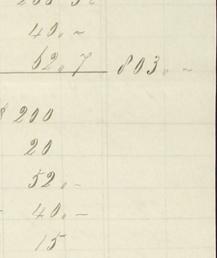 40. ~
62. 7 803. ~
$ 200
20
52. -
- 40. -
15